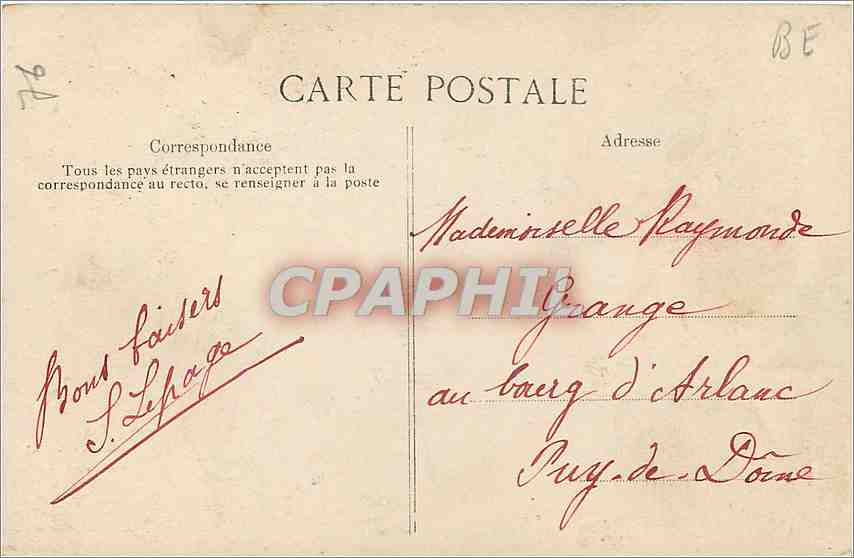 BE
CARTE POSTALE
Correspondance
Tous les pays étrangers n'acceptent pas la
correspondance au recto, se renseigner à la poste
Bons baisers
S. Lepage
Adresse
Mademoiselle Raymonde
Grange
au bourg d'Arlanc
Puy-de-Dôme
CPAPHIL